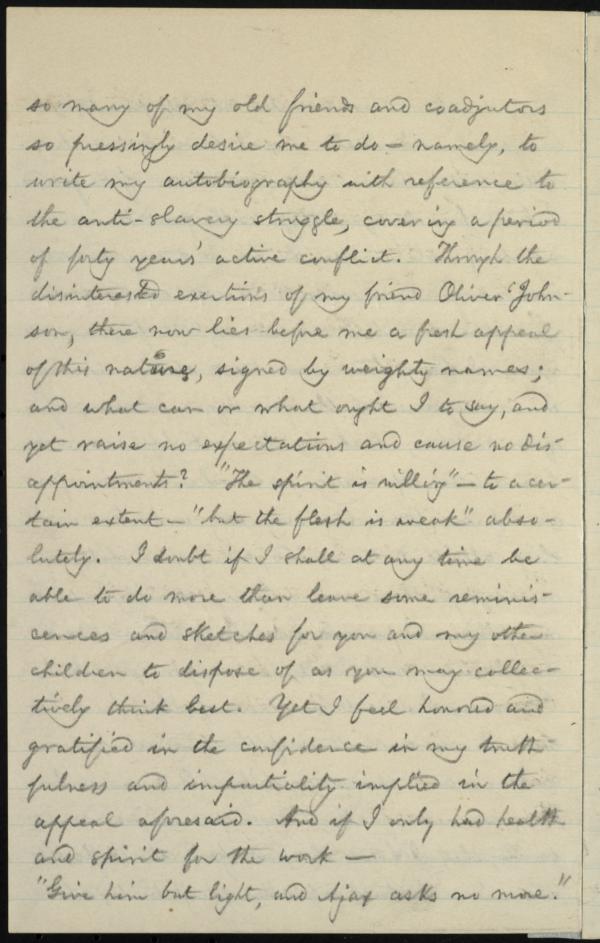 so many of my old friends and coadjutors
so pressingly desire me to do — namely, to
write my autobiography with reference to
the anti-slavery struggle, covering a period
of forty years' active conflict. Through the
disinterested exertions of my friend Oliver John-
son, there now lies before me a fresh appeal
of this nature, signed by weighty names;
and what can or what ought I to say, and
yet raise no expectations and cause no dis-
appointments? "The spirit is willing" — to a cer-
tain extent — "but the flesh is weak" abso-
lutely. I doubt if I shall at any time be
able to do more than leave some reminis-
cences and sketches for you and my other
children to dispose of as you may collec-
tively think best. Yet I feel honored and
gratified in the confidence in my truth-
fulness and impartiality implied in the
appeal aforesaid. And if I only had health
and spirit for the work —
"Give him but light, and Ajax asks no more."